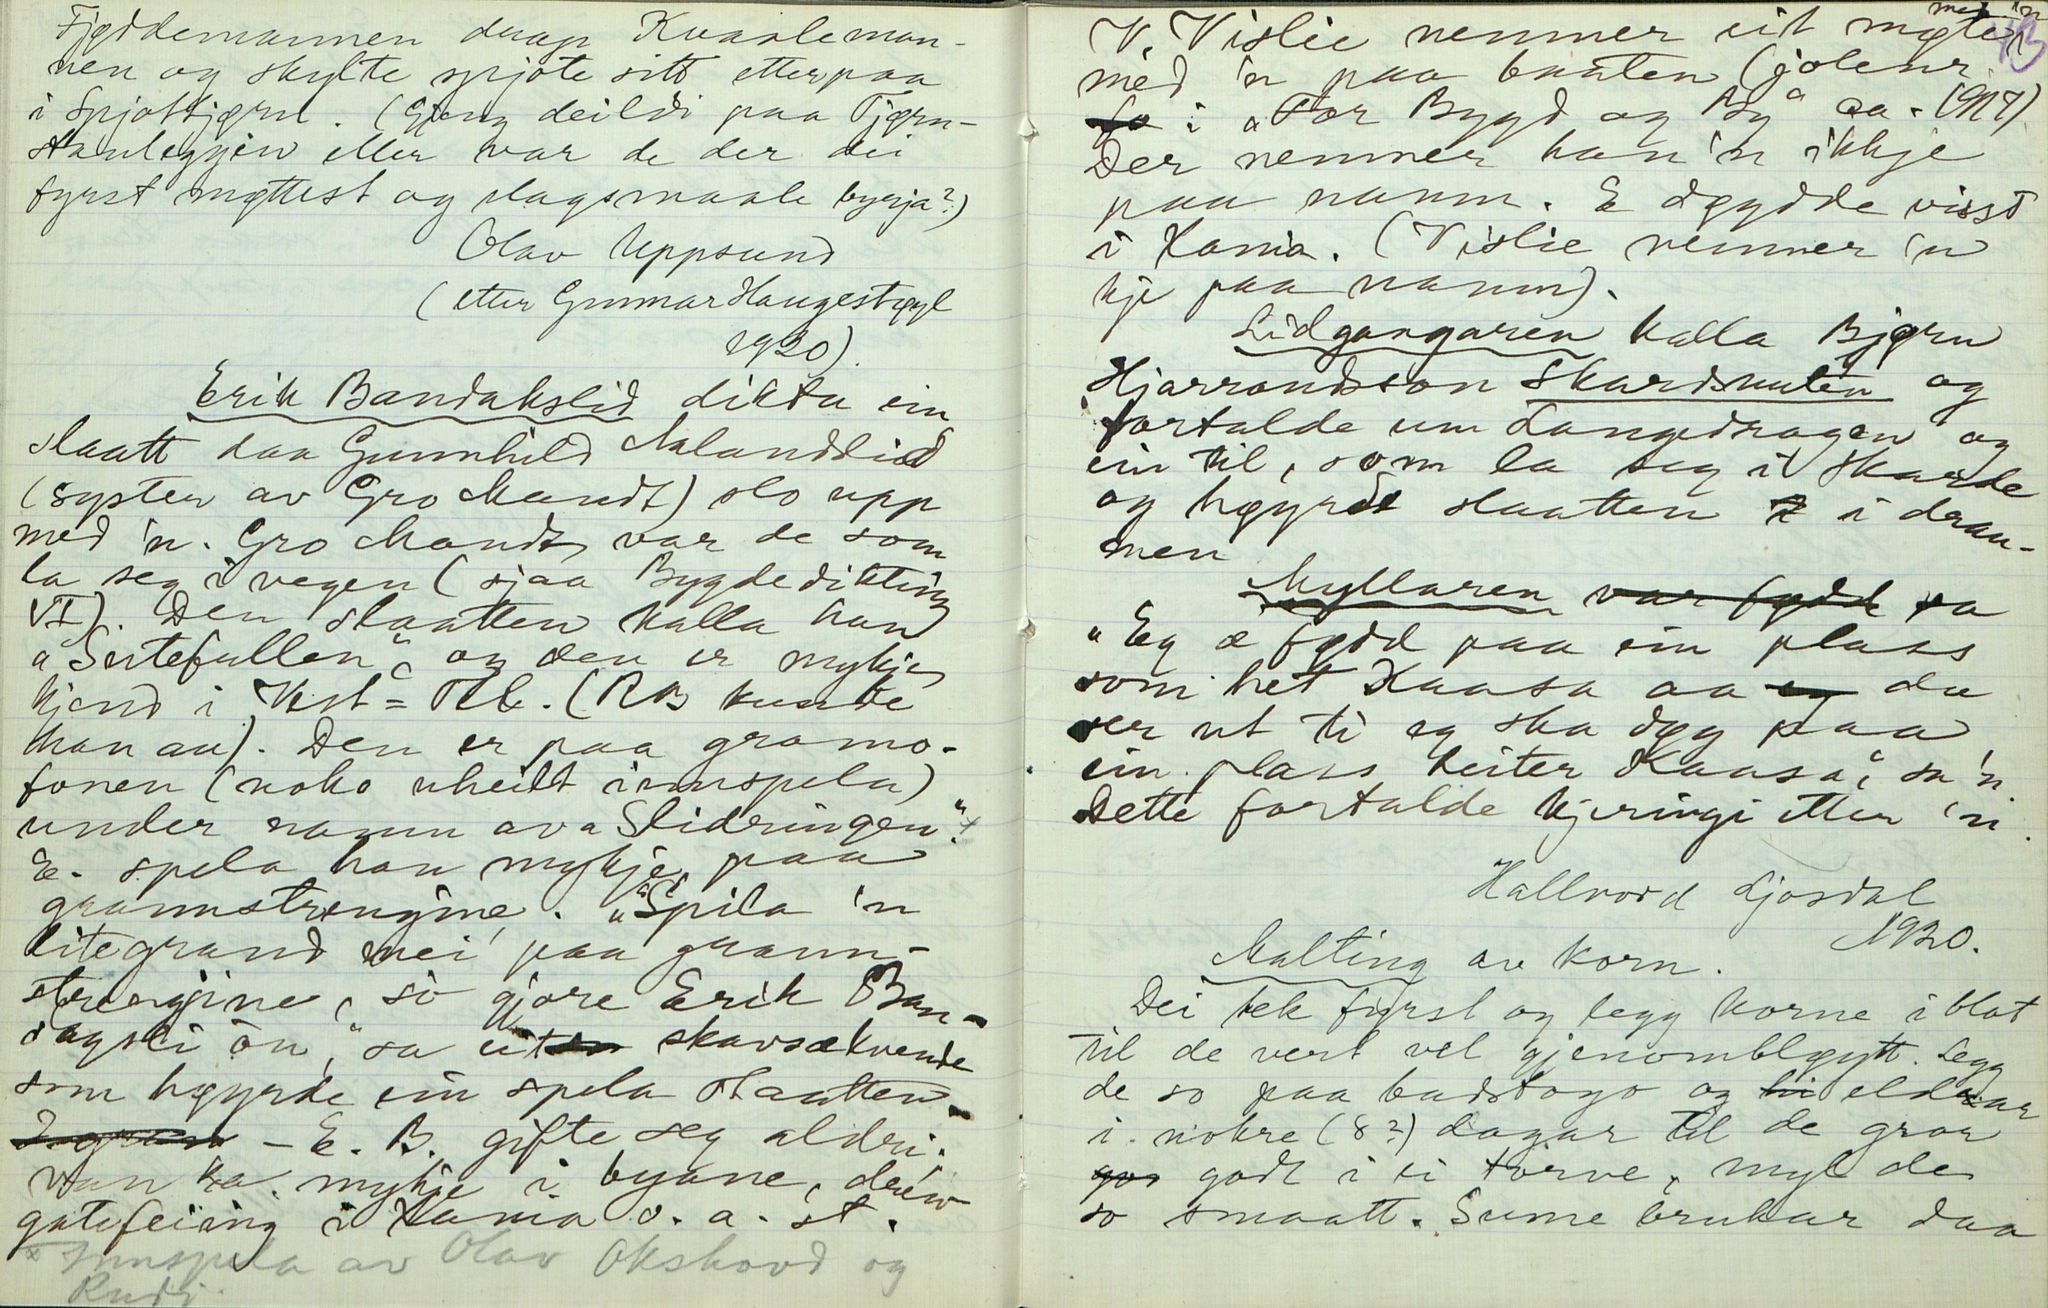 Fjøddemannen drap Kvaaleman-
nen og skylte spjote sitt etterpaa
i Spjottjørn. (Gjeng deildi paa Tjørn-
stauleggjen eller var de der dei
fyrst møttest og slagsmaale byrja?)
Olav Uppsund
(etter Gunnar Haugestøyl
1920).
Erik Bandakslid dikta ein
slaatt daa Gunnhild Aalandslid
(syster av Gro Mandt) slo upp
med 'n. Gro Mandt var de som
la seg i vegen (sjaa Bygdedikting
VI). Den slaatten kalla han
"Sertefullen", og den er mykje
kjend i Vest-Tel. (RB kunde
han au). Den er paa gramo-
fonen (noko uheilt innspela)
under namn av "Slidringen".x
E. spela han mykje paa
grannstrengjine. "Spila 'n
litegrand nei paa grann-
strengjine, so gjore Erik Ban-
dagsli òn," sa eit skavsækvende
som høyrde ein spela slaatten.
– E. B. gifte seg aldri.
Han va mykje i byane, dreiv
gatefeiing i Kania o. a. st.
x Innspela av Olav Okshovd og
Rudi.
V. Vislie nemner eit møte
med 'n paa baaten (jolenr.
i "For Bygd og By" ca. 1917)
Der nemner han 'n ikkje
paa namn. E døydde visst
i Kania. (Vislie nemner 'n
kje paa namn).
Lidgangaren kalla Bjørn
Hjarrandson Skardsnuten og
fortalde um Langedragen og
ein til, som la seg i Skarde
og høyrde slaatten i drau-
men
Myllaren sa
"Eg æ fødd paa ein plass
som het Kaasa aa da
ser ut ti eg ska døy paa
ein plass heiter Kaasa", sa 'n.
Dette fortalde kjeringi etter 'n.
Hallvord Ljosdal
1920.
Malting av korn.
Dei tek fyrst og legg korne i blot
til de vert vel gjenombløytt. Legg
de so paa badstogo og eldar
i nokre (8?) dagar til de gror
godt i ti turve, myl de
so smaatt. Sume brukar daa